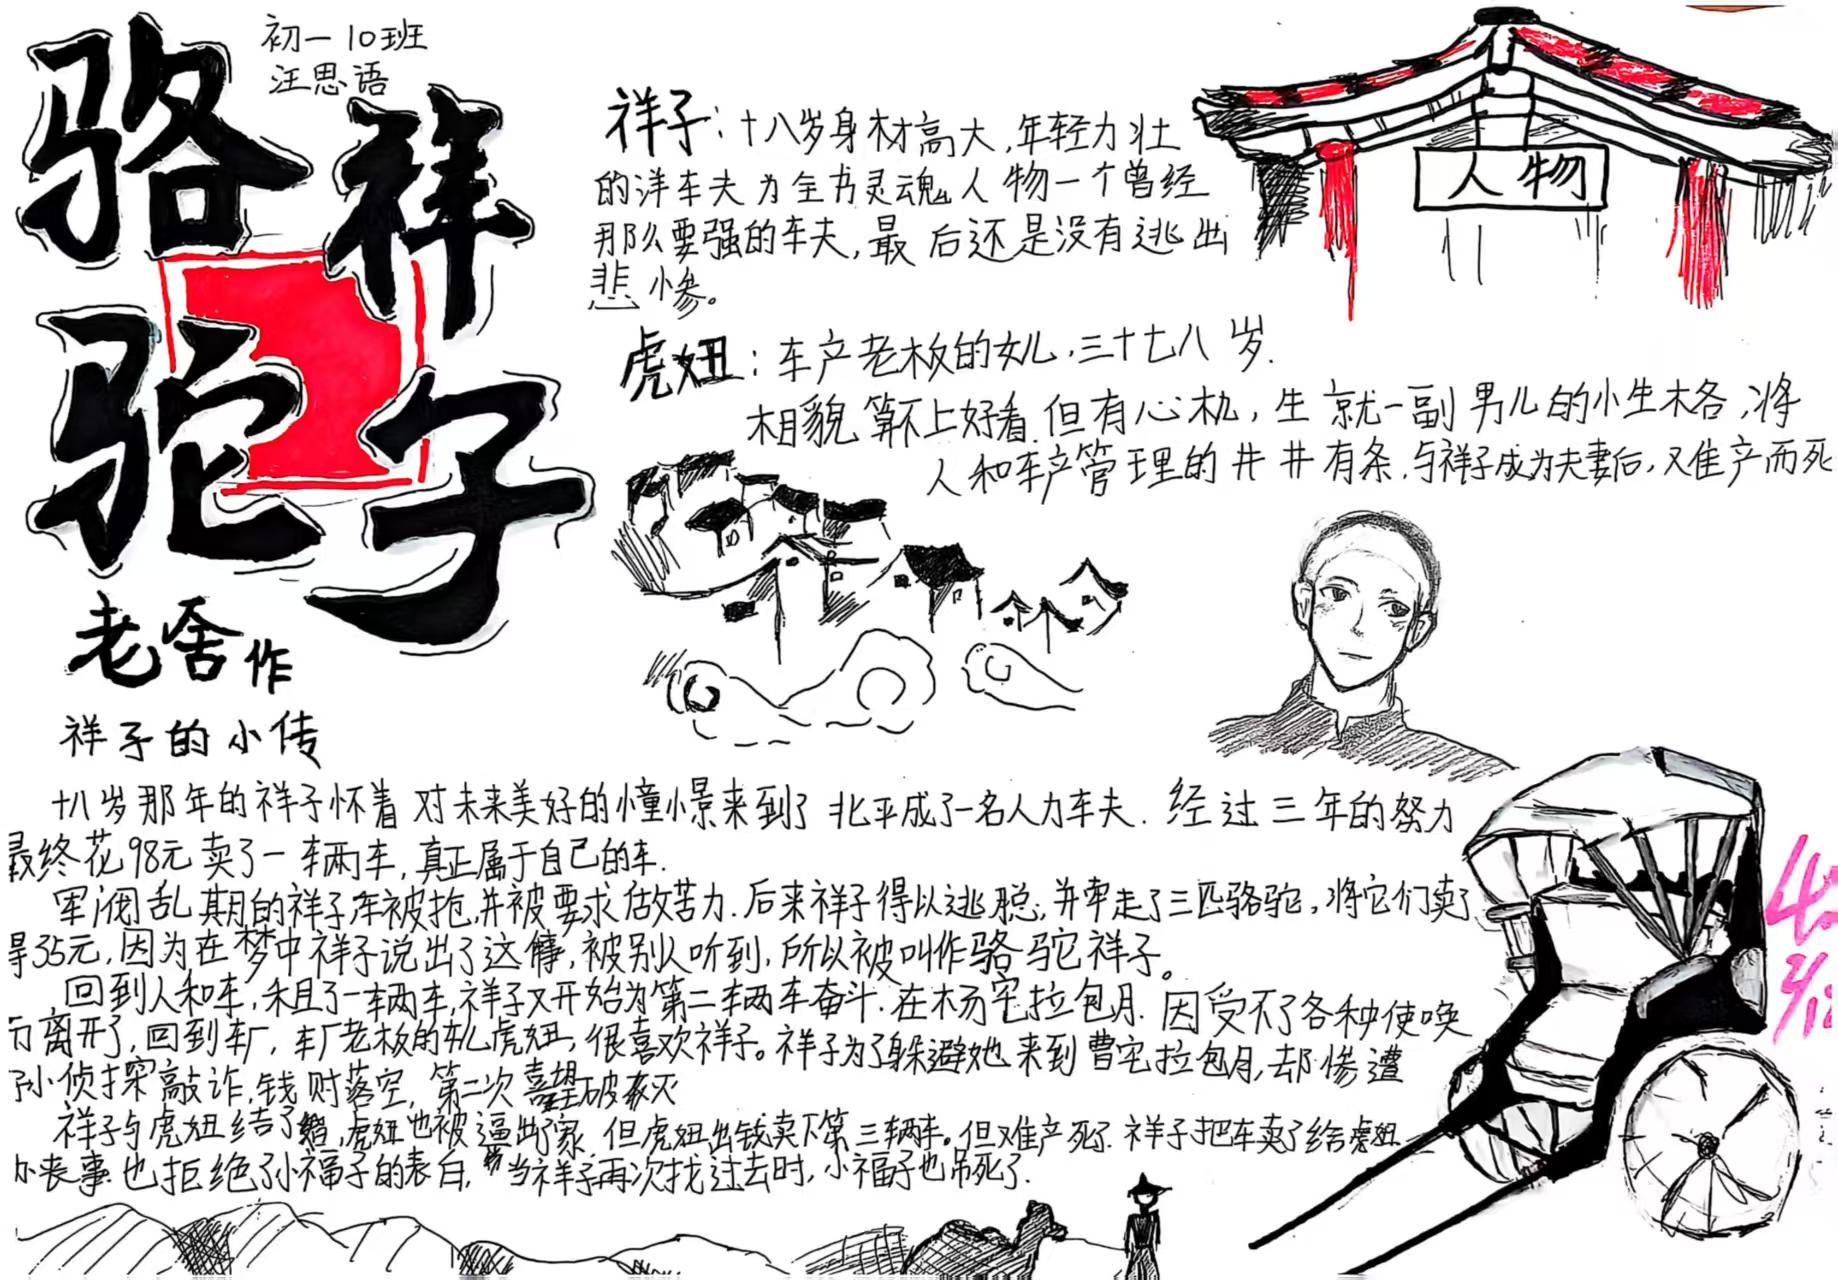 骆驼祥子
初一10班
汪思语
老舍作
人物
祥子：十八岁身材高大，年轻力壮
的洋车夫为全书灵魂人物一个曾经
那么要强的车夫，最后还是没有逃出
悲惨。
虎妞：车产老板的女儿，三十七八岁.
相貌算不上好看.但有心机，生就一副男儿的小生格，将
人和车产管理的井井有条，与祥子成为夫妻后，难产而死
祥子的小传
十八岁那年的祥子怀着对未来美好的憧憬来到了北平成了一名人力车夫.经过三年的努力
最终花98元卖了一车辆车，真正属于自己的车.
军阀乱期的祥子车被抢，并被要求做苦力.后来祥子得以逃脱，并牵走了三匹骆驼，将它们卖了
得35元，因为在梦中祥子说出了这件事，被别人听到，所以被叫作骆驼祥子。
回到人和车，租了一车辆车，祥子又开始为第二车辆车奋斗.在杨宅拉包月.因受不了各种使唤
离开了，回到车厂，车厂老板的女儿虎妞，很喜欢祥子。祥子为了躲避她来到曹宅拉包月，却惨遭
孙侦探敲诈，钱财落空，第二次希望破灭
祥子与虎妞结了婚，虎妞也被逼出了家.但虎妞出钱卖下第三辆车。但难产死了.祥子把车卖了给虎妞
办丧事.也拒绝了小福子的表白，当祥子再次找过去时，小福子也吊死了.